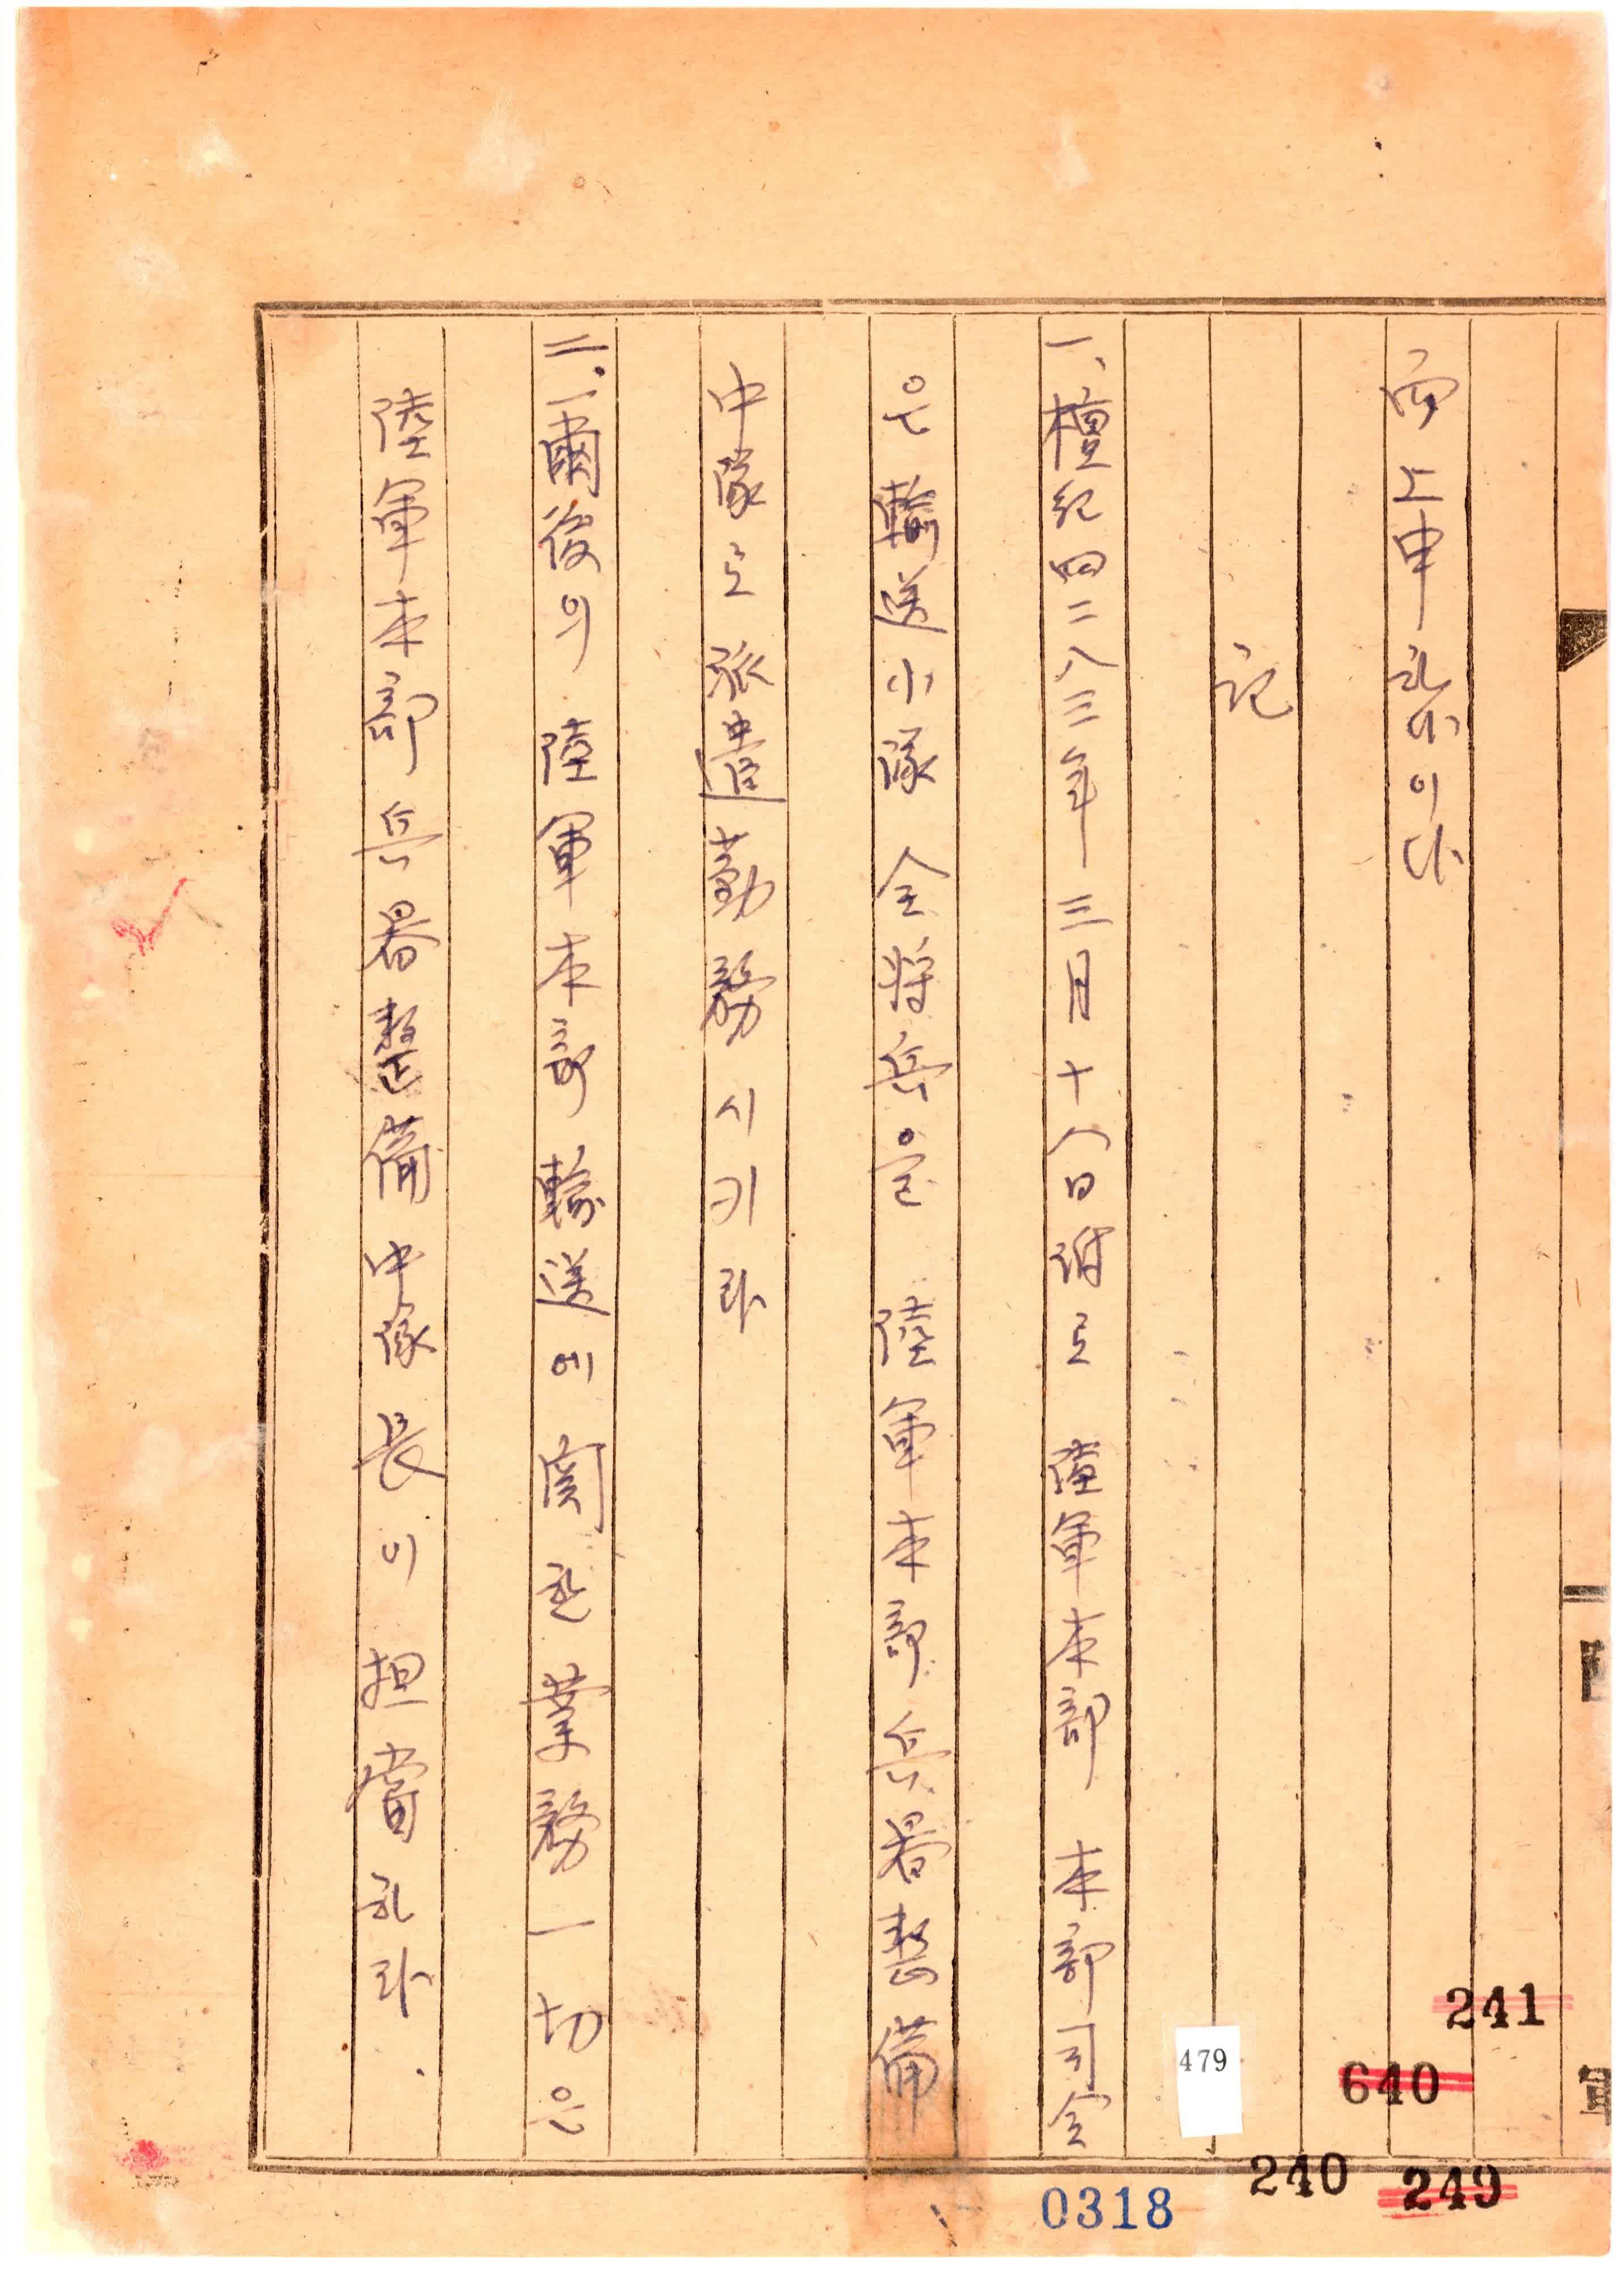 如上申함이다
記
一、檀紀四二八三年三月十八日附로 陸軍本部 本部司令
로 輸送小隊 全將兵은 陸軍本部 兵器整備
中隊로 派遣勤務시키라
二、爾後의 陸軍本部 輸送에 関한 業務一切은
陸軍本部 兵器整備中隊長이 担當하라.
479
241
640
240
249
0318
軍